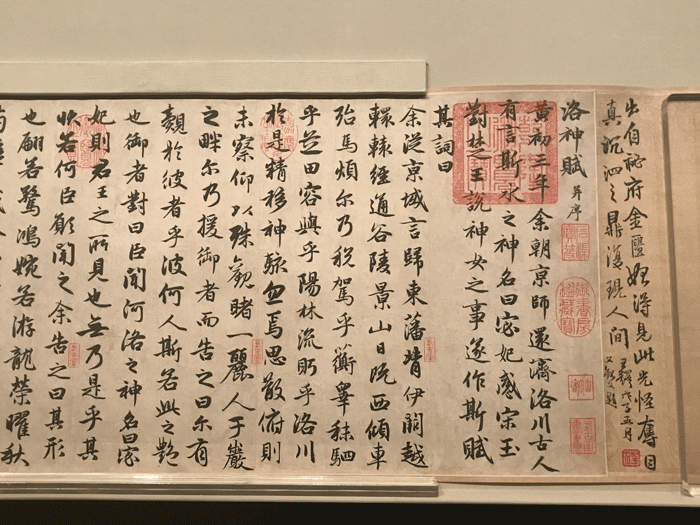 出自秘府金匱始得見此光怪奪目
真沉泗之鼎復現人間
洛神賦 并序
黃初三年余朝京師還濟洛川古人
有言斯水之神名曰宓妃感宋玉
對楚王說神女之事遂作斯賦
其詞曰
余從京域言歸東藩背伊闕越
轘轅經通谷陵景山日既西傾車
殆馬煩尔乃稅駕乎蘅皋秣駟
乎芝田容與乎陽林流眄乎洛川
於是精移神駭忽焉思散俯則
未察仰以殊觀睹一麗人于巖
之畔尔乃援御者而告之曰尔有
覿於彼者乎彼何人斯若此之艷
也御者對曰臣聞河洛之神名曰宓
妃則君王之所見也無乃是乎其
狀若何臣願聞之余告之曰其形
也翩若驚鴻婉若游龍榮曜秋